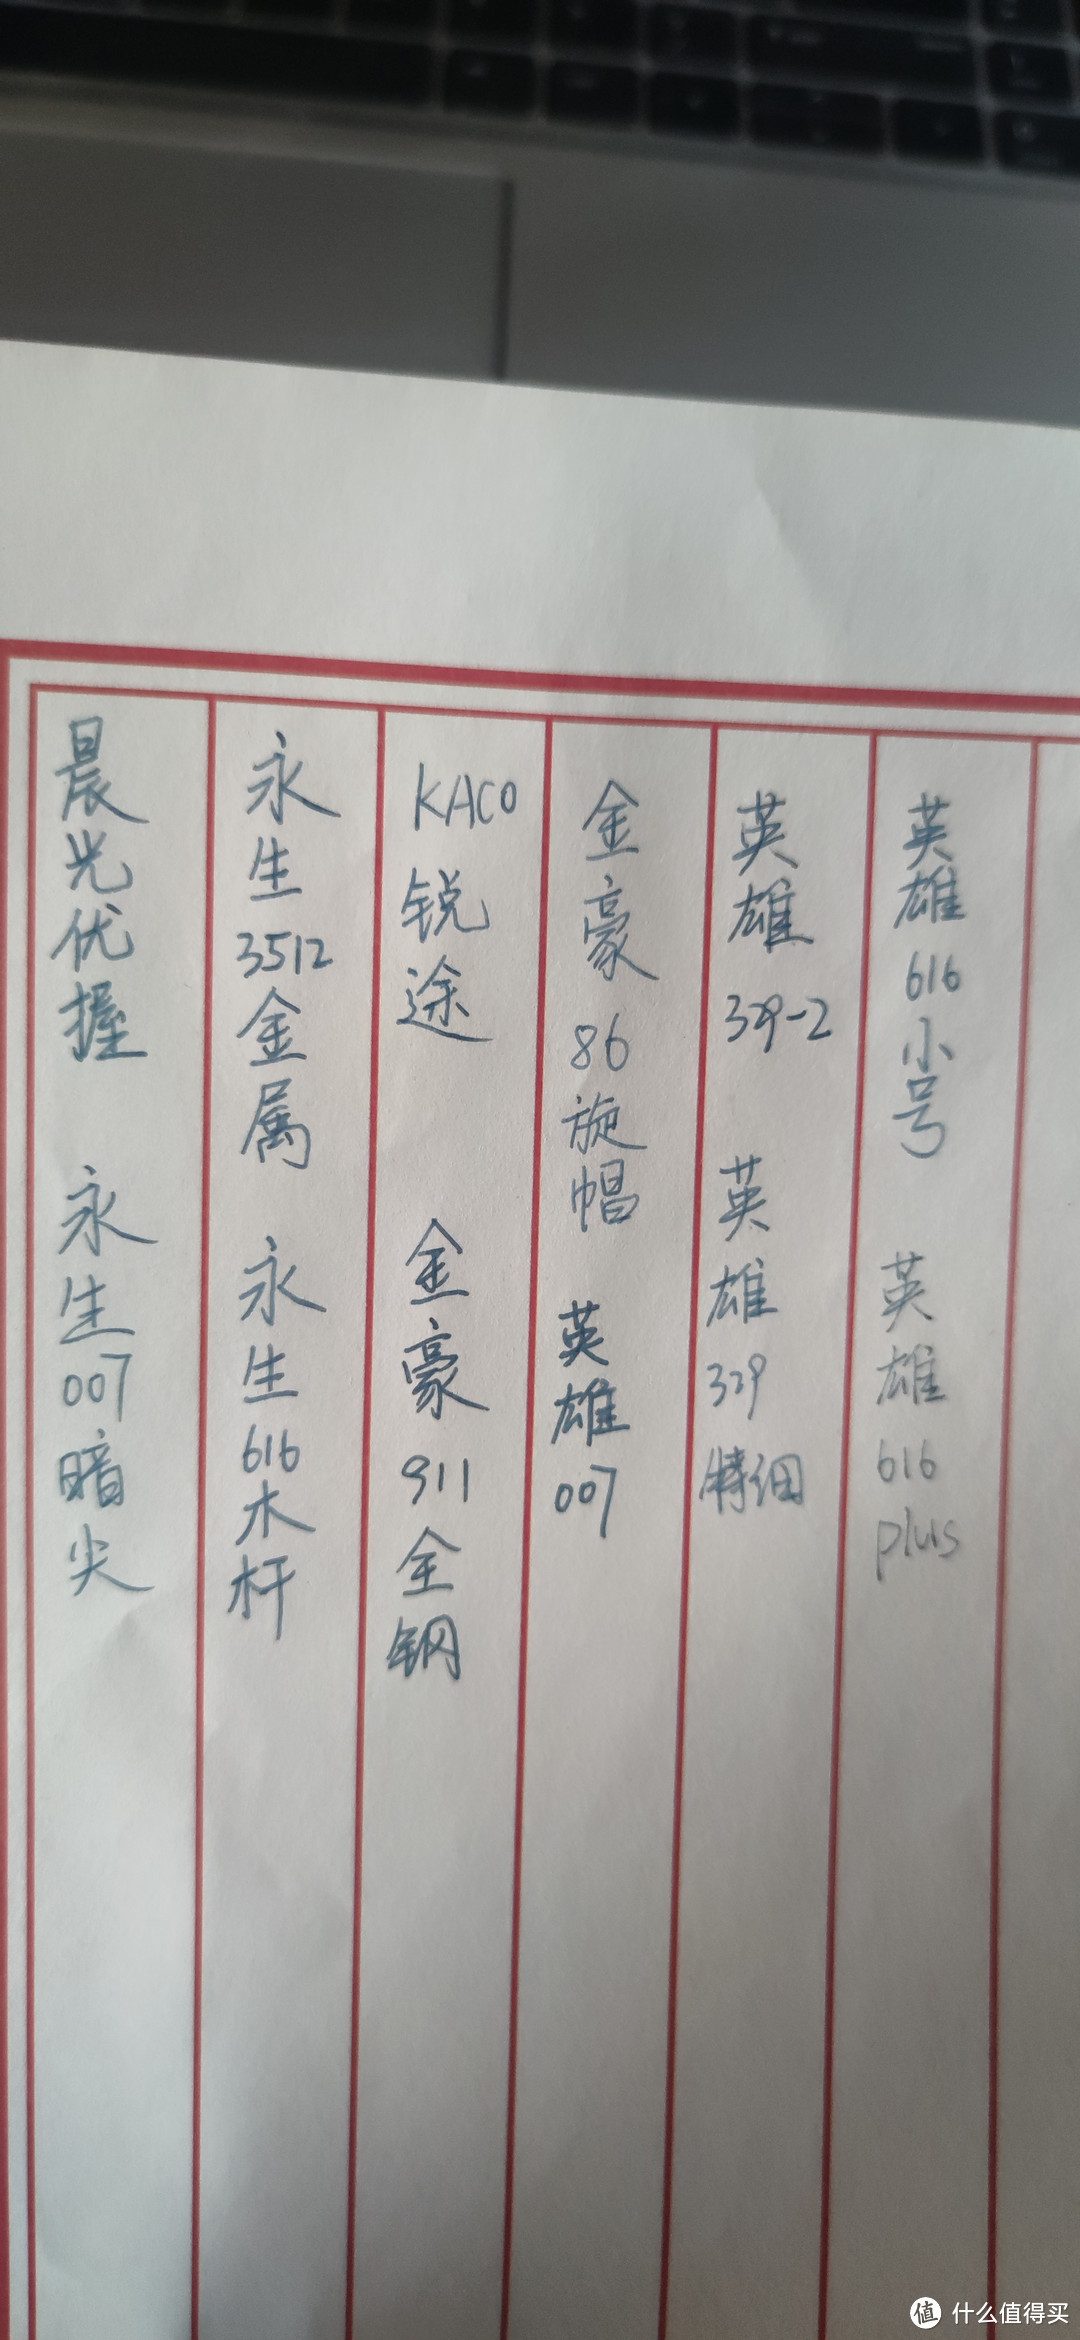 晨光优握 永生007暗尖
永生3512金属 永生616木杆
KACO锐途 金豪911全钢
金豪86旋帽 英雄007
英雄329-2 英雄329特细
英雄616小号 英雄616plus
值 什么值得买